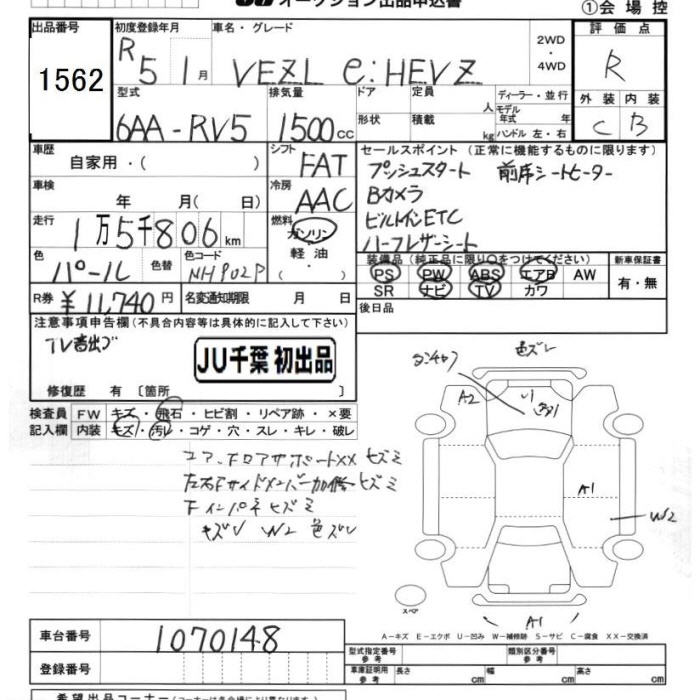 オークション出品申込書
①会場控
出品番号 1562
初度登録年月 R5 1月
車名・グレード VEZL e:HEVZ
2WD・4WD
評価点 R
外装 C 内装 B
型式 6AA-RV5
排気量 1500cc
ドア 形状
定員 人 積載 kg
ディーラー・並行
モデル年式 年
ハンドル 左・右
車歴 自家用・( )
シフト FAT
車検 年 月( 日)
冷房 AAC
走行 1万5千806km
燃料 ガソリン・軽油・( )
色 パール 色替
色コード NH902P
R券 ¥11,740円
名変通知期限 月 日
セールスポイント(正常に機能するものに限ります)
プッシュスタート 前席シートヒーター
Bカメラ
ビルトインETC
ハーフレザーシート
装備品(純正品に限り○をつけてください)
PS PW ABS エアB AW
SR ナビ TV カワ
新車保証書 有・無
後日品
注意事項申告欄(不具合内容等は具体的に記入して下さい)
TV音出ず
JU千葉 初出品
修復歴 有〔箇所 〕
検査員記入欄
FW キズ・飛石・ヒビ割・リペア跡・×要
内装 キズ・汚レ・コゲ・穴・スレ・キレ・破レ
コア、Fロアサポート××ヒズミ
左右Fサイドメンバー加修ヒズミ
Fインパネヒズミ
キズU W2 色ズレ
色ズレ
A2 U1
A1
W2
A1
スペア
A-キズ E-エクボ U-凹み W-補修跡 S-サビ C-腐食 XX-交換済
車台番号 1070148
登録番号
型式指定番号 参考
類別区分番号 参考
車庫証明用 参考 長さ cm 幅 cm 高さ cm
希望出品コーナー